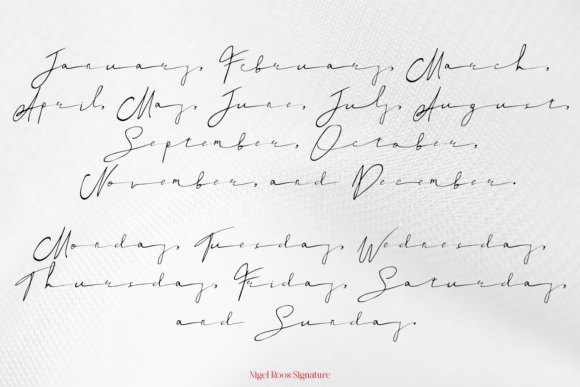 January, February, March,
April, May, June, July, August,
September, October,
November, and December.
Monday, Tuesday, Wednesday,
Thursday, Friday, Saturday,
and Sunday.
Nigel Roos Signature